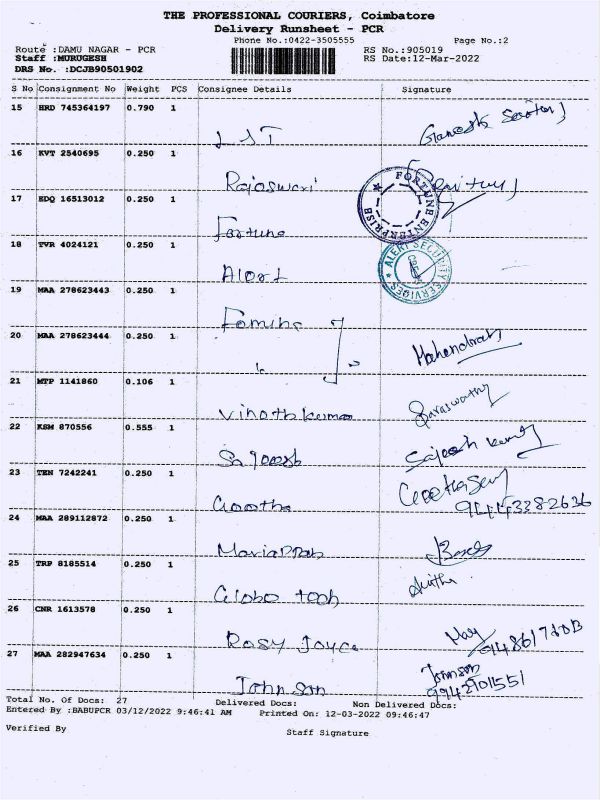 THE PROFESSIONAL COURIERS, Coimbatore
Delivery Runsheet - PCR
Phone No.:0422-3505555 Page No.:2
Route :DAMU NAGAR - PCR RS No.:905019
Staff :MURUGESH RS Date:12-Mar-2022
DRS No. :DCJB90501902
S No Consignment No Weight PCS Consignee Details Signature
15 HRD 745364197 0.790 1
16 KVT 2540695 0.250 1
Rajaswari
17 EDQ 16513012 0.250 1
FORTUNE ENTERPRISE
Fortune
18 TVR 4024121 0.250 1
ALERT SECURITY SERVICES
Alert
19 MAA 278623443 0.250 1
20 MAA 278623444 0.250 1
Mahendran
21 MTP 1141860 0.106 1
Vinothkumar Saraswathy
22 KSM 870556 0.555 1
Sajeesh Sajeesh kumar
23 TEN 7242241 0.250 1
Geetha 94443382636
24 MAA 289112872 0.250 1
25 TRP 8185514 0.250 1
Globo tech
26 CNR 1613578 0.250 1
Rosy Joyce
27 MAA 282947634 0.250 1
Johnson Johnson
9942101551
Total No. Of Docs: 27 Delivered Docs: Non Delivered Docs:
Entered By :BABUPCR 03/12/2022 9:46:41 AM Printed On: 12-03-2022 09:46:47
Verified By Staff Signature